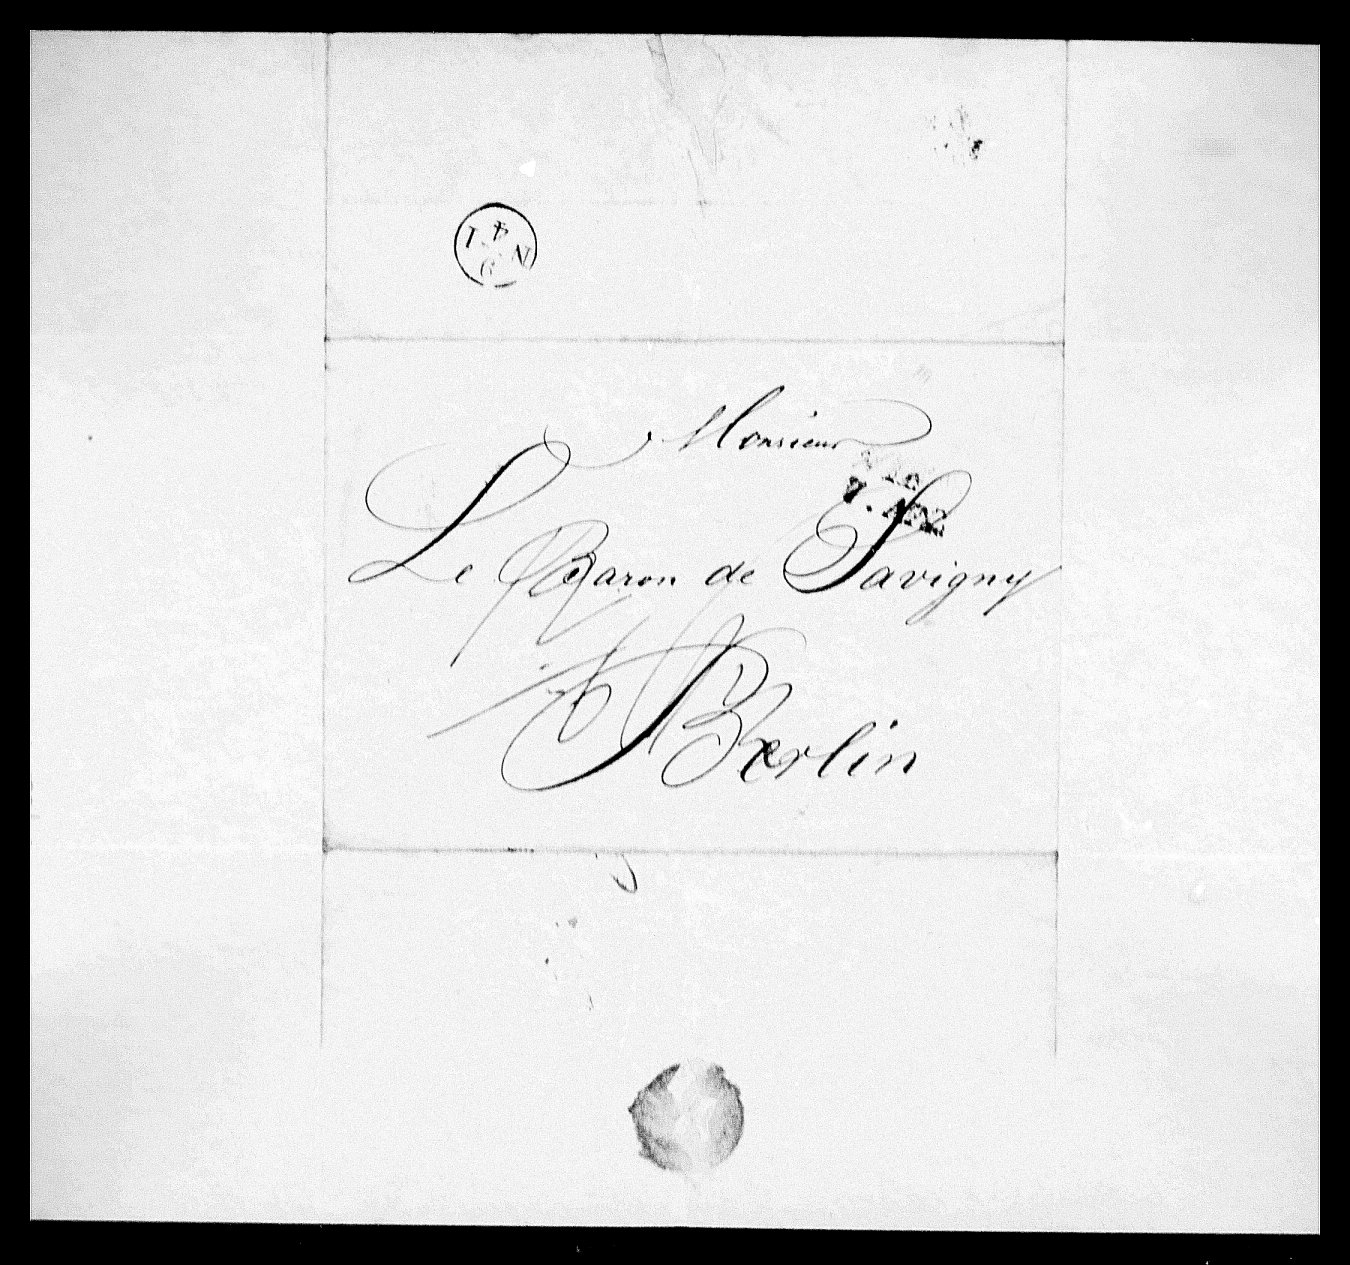 Monsieur
Le Baron de Savigny
à Berlin